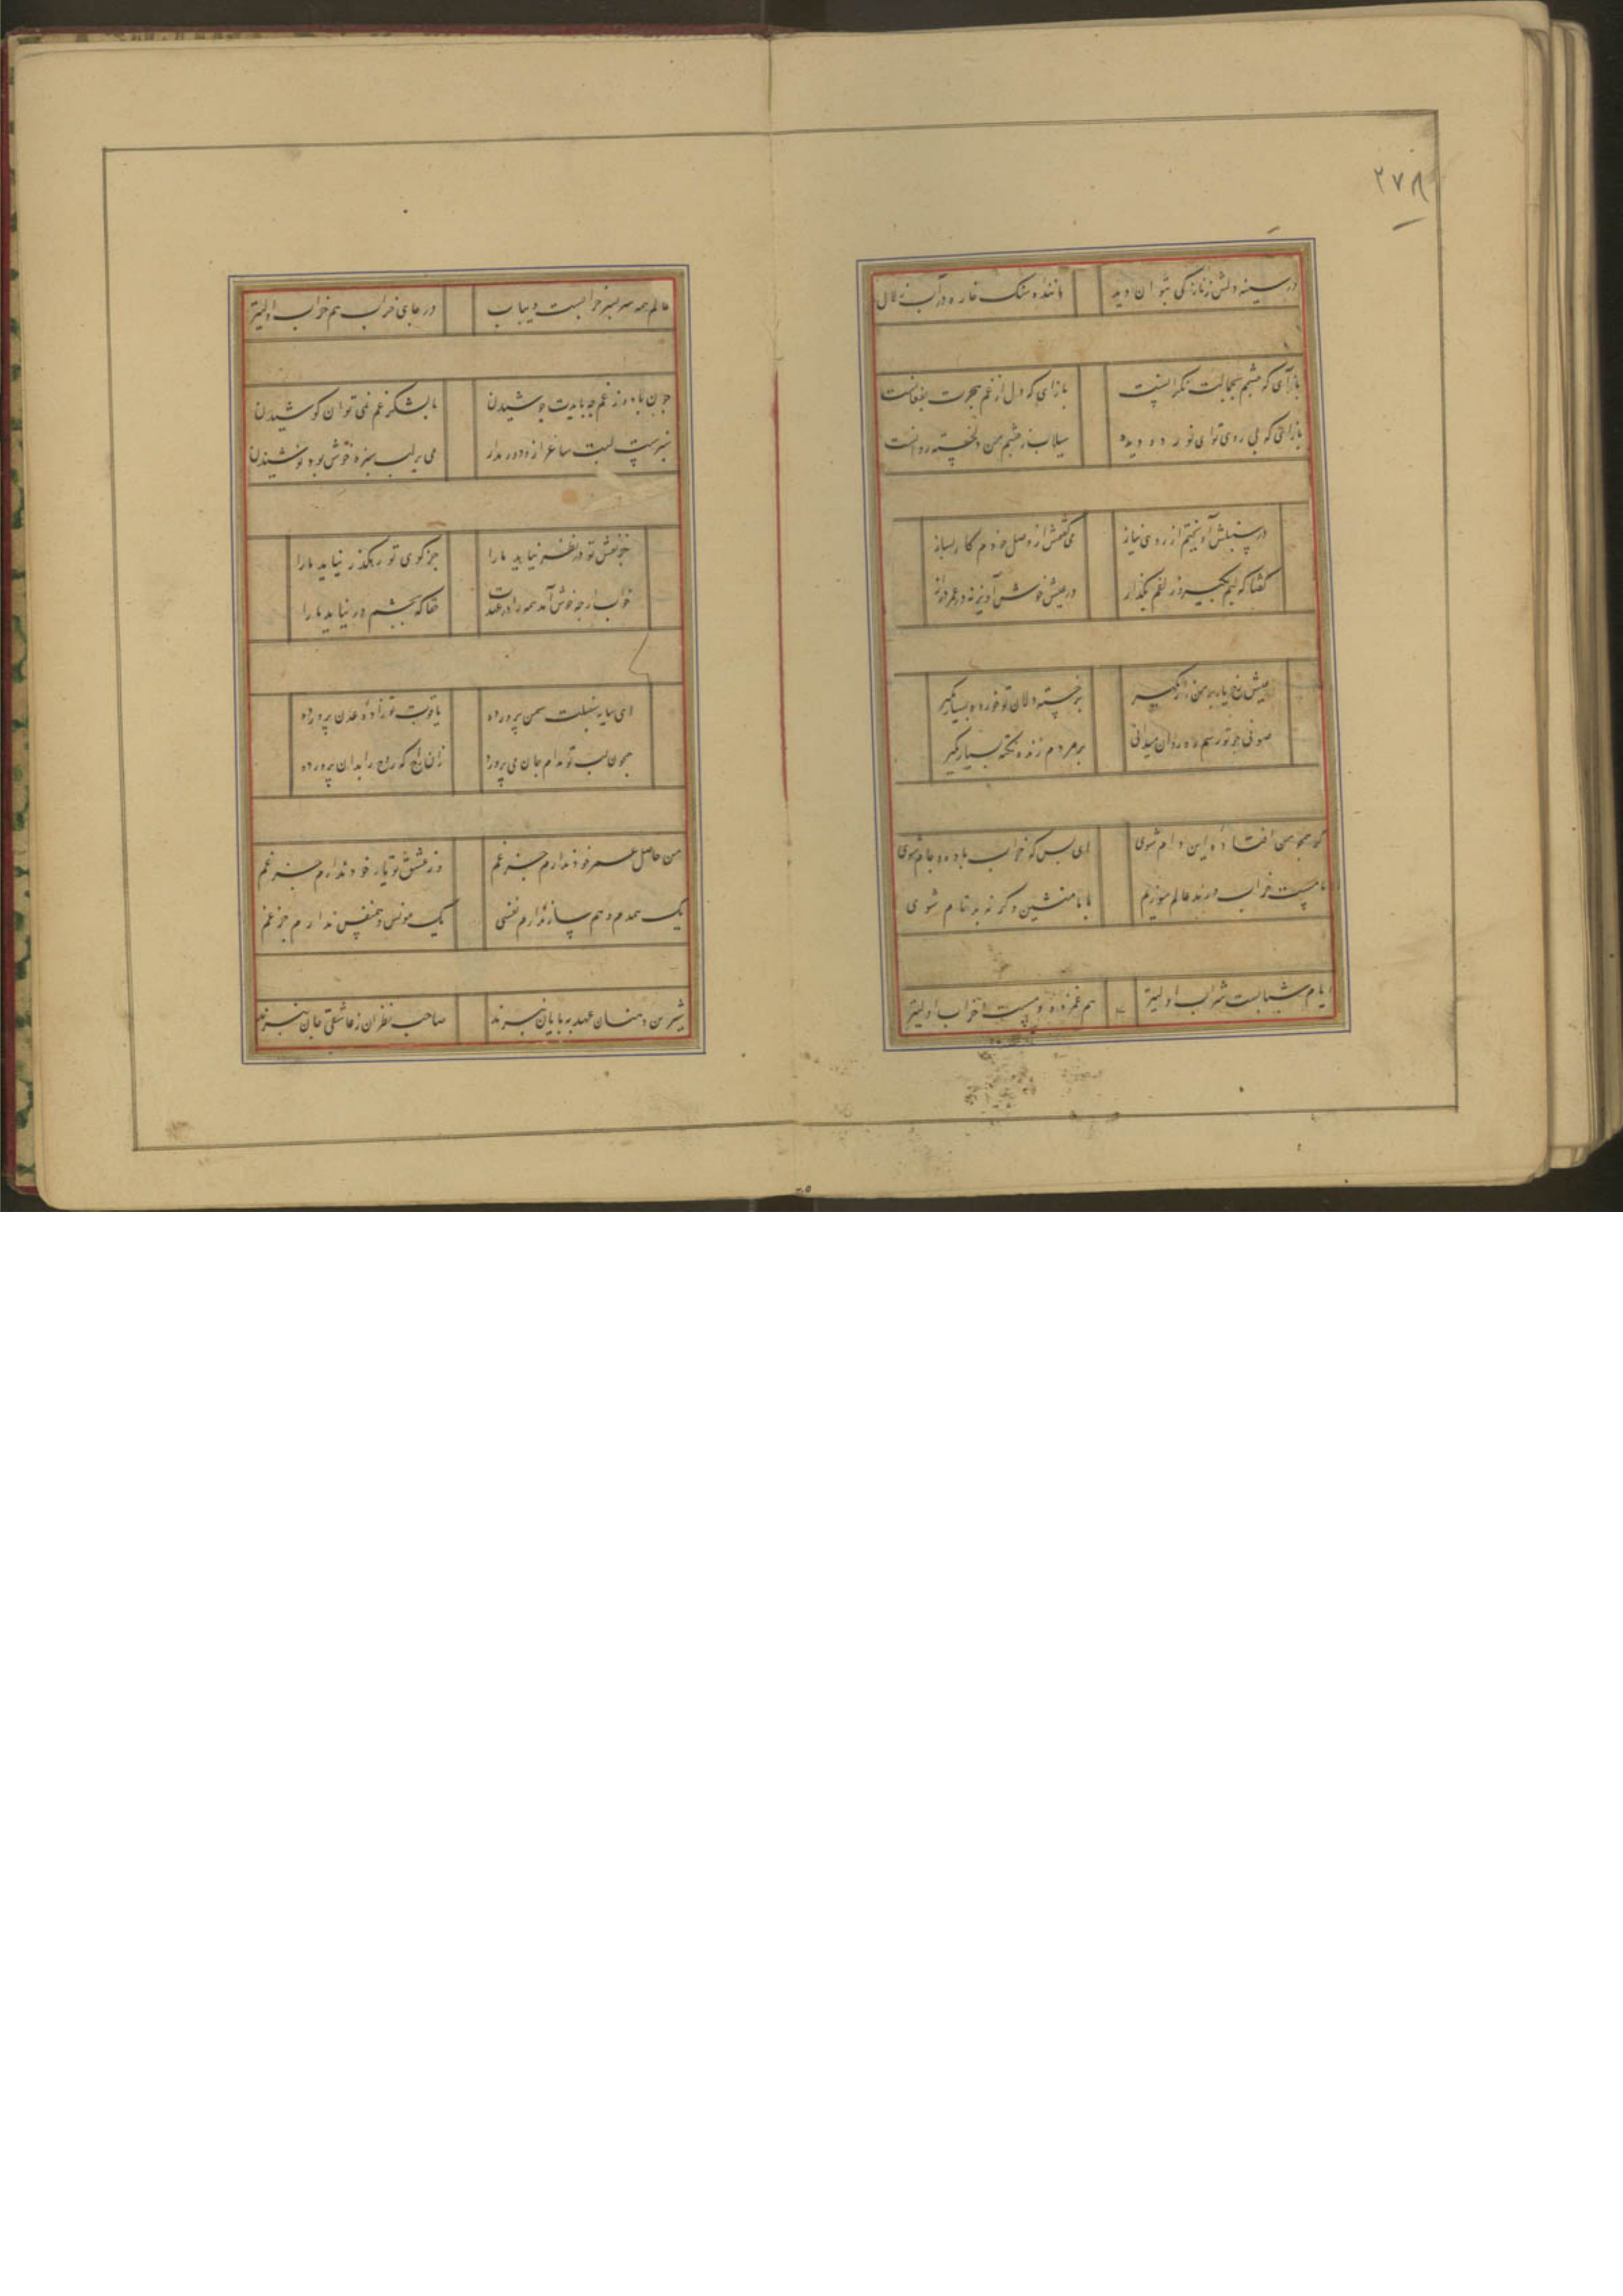 ۲۷۸
در سینه دلش ز نازکی بتوان دید مانندهٔ سنک خاره در آب زلال
بازآی که چشمم بجمالت نکرانست بازای که دل از غم هجرت بفغانست
بازآی که بی روی تو ای نور دو دیده سیلاب ز چشم من دلخسته روانست
در سنبلش آویختم از روی نیاز می کفتمش از وصل خودم کار بساز
کفتا که لبم بکیر و زلفم بکذار در عیش خوش آویز نه در عمر دراز
برخسته دلان تو خورده بسیار مکیر
صوفی چو تو رسم ره روان میدانی بر مردم رند نکته بسیار مکیر
کر همچو من افتادهٔ این دام شوی ای بس که خراب باده و جام شوی
ما مست خراب و رند عالم سوزیم با ما منشین و کرنه بدنام شوی
ایام شبابست شراب اولیتر هم غم زده و مست و خراب اولیتر
عالم همه سر بسر خرابست و یباب در جای خراب هم خراب اولیتر
چون باده ز غم چه بایدت جوشیدن با لشکر غم نمی توان کوشیدن
سبزست لبت ساغر ازو دور مدار می بر لب سبزه خوش بود نوشیدن
جز نقش تو در نظر نیاید ما را جز کوی تو رهکذر نیاید ما را
خواب ارچه خوش آمد همه را در عهدت حقا که بچشم در نیاید ما را
ای سایهٔ سنبلت سمن پرورده یاقوت تو زادهٔ عدن پرورده
همچون لب تو مدام جان می پرورد زان راح که روح را بدان پرورده
من حاصل عمر خود ندارم جز غم وز عشق تو یار خود ندارم جز غم
یک همدم و هم ساز ندارم نفسی یک مونس و همنفس ندارم جز غم
شیرین دهنان عهد به پایان نبرند صاحب نظران ز عاشقی جان نبرند